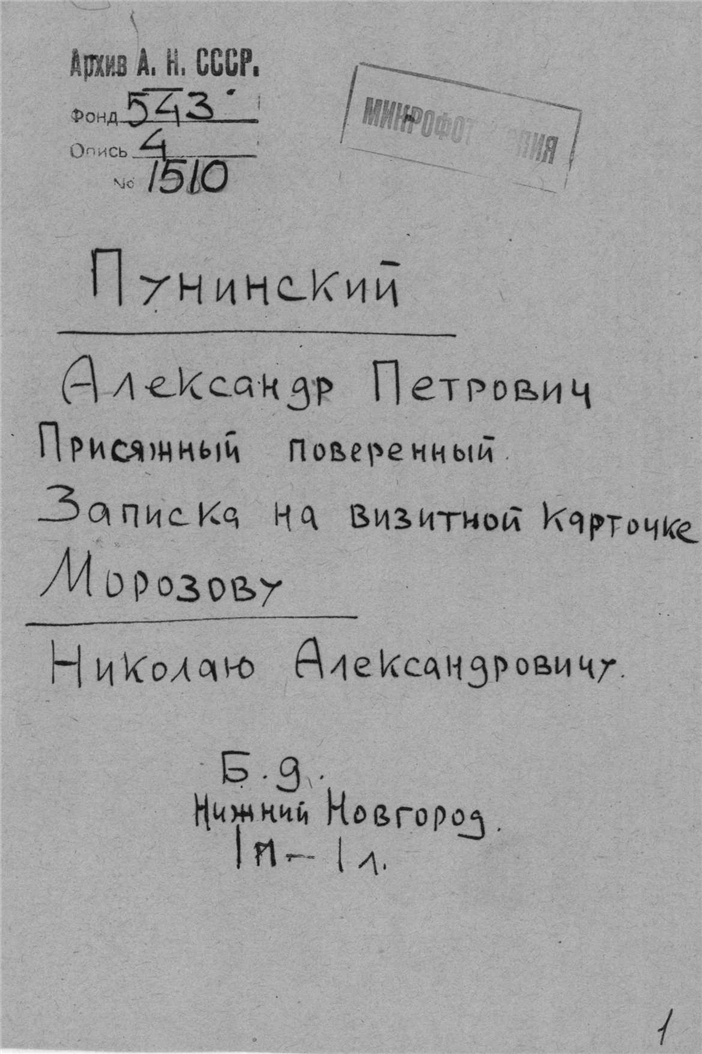 Архив А. Н. СССР.
Фонд 543
Опись 4
№ 1510
Пунинский
Александр Петрович
Присяжный поверенный.
Записка на визитной карточке
Морозову
Николаю Александровичу.
Б. д.
Нижний Новгород.
1п – 1 л.
1